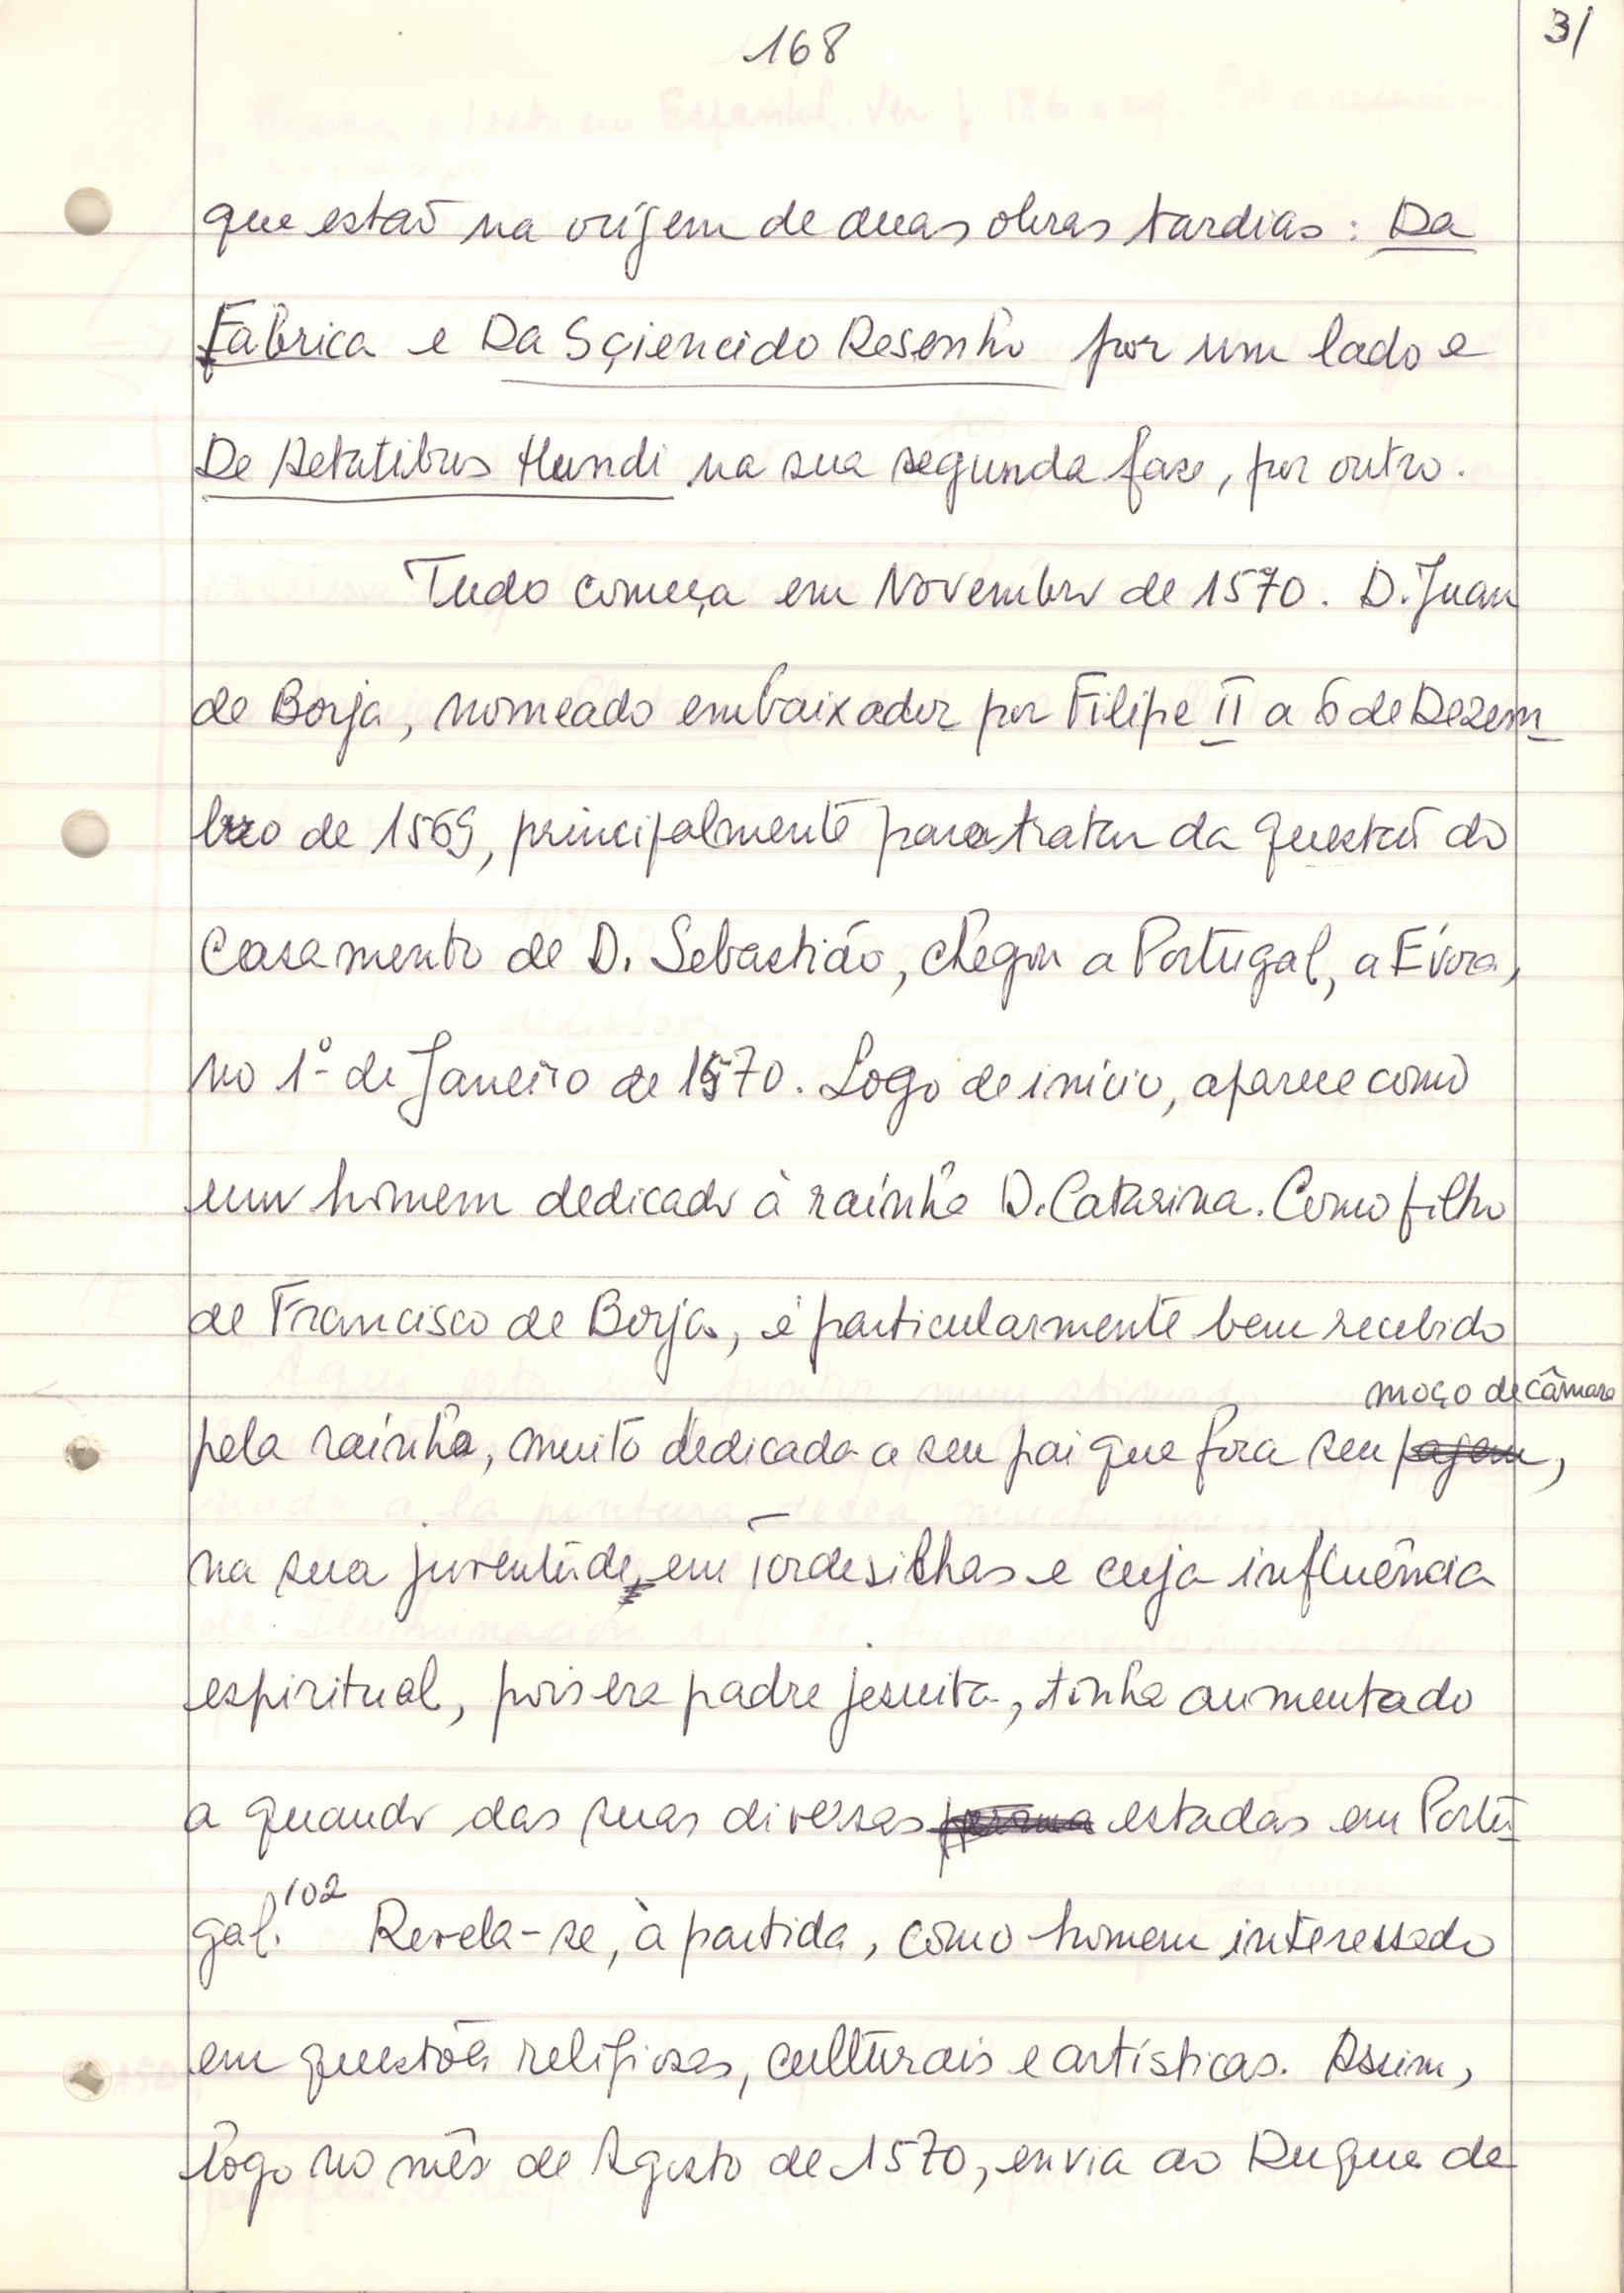 168
31
que estão na origem de duas obras tardias: Da
Fabrica e Da Sciencia do Desenho por um lado e
De Aetatibus Mundi na sua segunda fase, por outro.
Tudo começa em Novembro de 1570. D. Juan
de Borja, nomeado embaixador por Filipe II a 6 de Dezem
bro de 1569, principalmente para tratar da questão do
Casamento de D. Sebastião, chegou a Portugal, a Évora,
no 1º de Janeiro de 1570. Logo de início, aparece como
um homem dedicado à rainha D. Catarina. Como filho
de Francisco de Borja, é particularmente bem recebido
moço de câmara
pela rainha, muito dedicada a seu pai que fora seu pagem,
na sua juventude em Tordesilhas e cuja influência
espiritual, pois era padre jesuita, tinha aumentado
a quando das suas diversas estadas em Portu
gal.102 Revela-se, à partida, como homem interessado
em questões religiosas, culturais e artísticas. Assim,
logo no mês de Agosto de 1570, envia ao Duque de